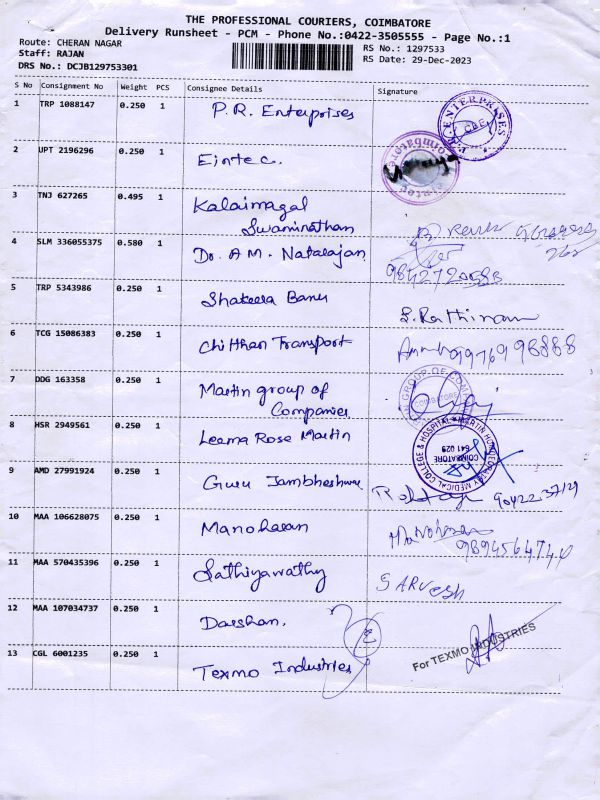 THE PROFESSIONAL COURIERS, COIMBATORE
Delivery Runsheet - PCM - Phone No.:0422-3505555 - Page No.:1
Route: CHERAN NAGAR
Staff: RAJAN
DRS No.: DCJB129753301
RS No.: 1297533
RS Date: 29-Dec-2023
S No Consignment No Weight PCS Consignee Details Signature
1 TRP 1088147 0.250 1 P.R. Enterprises
P.R. ENTERPRISES CBE
2 UPT 2196296 0.250 1 Eintec.
Coimbatore
3 TNJ 627265 0.495 1 Kalaimagal
Swaminathan
4 SLM 336055375 0.580 1 Dr. A M. Natarajan
9842720588
5 TRP 5343986 0.250 1 Shakeela Banu S. Rathinam
6 TCG 15086383 0.250 1 Chitthan Transport 9976998888
7 DDG 163358 0.250 1 Martin group of
Companies
GROUP OF COM COIMBATORE
8 HSR 2949561 0.250 1 Leema Rose Martin
MARTIN HOMOEOPATHY MEDICAL COLLEGE & HOSPITAL COIMBATORE 641 029
9 AMD 27991924 0.250 1 Guru Jambheshwar
10 MAA 106628075 0.250 1 Manoharan Manoharan
9894564744
11 MAA 570435396 0.250 1 Sathiyavathy SARVESH
12 MAA 107034737 0.250 1 Darshan.
13 CGL 6001235 0.250 1 Texmo Industries
For TEXMO INDUSTRIES